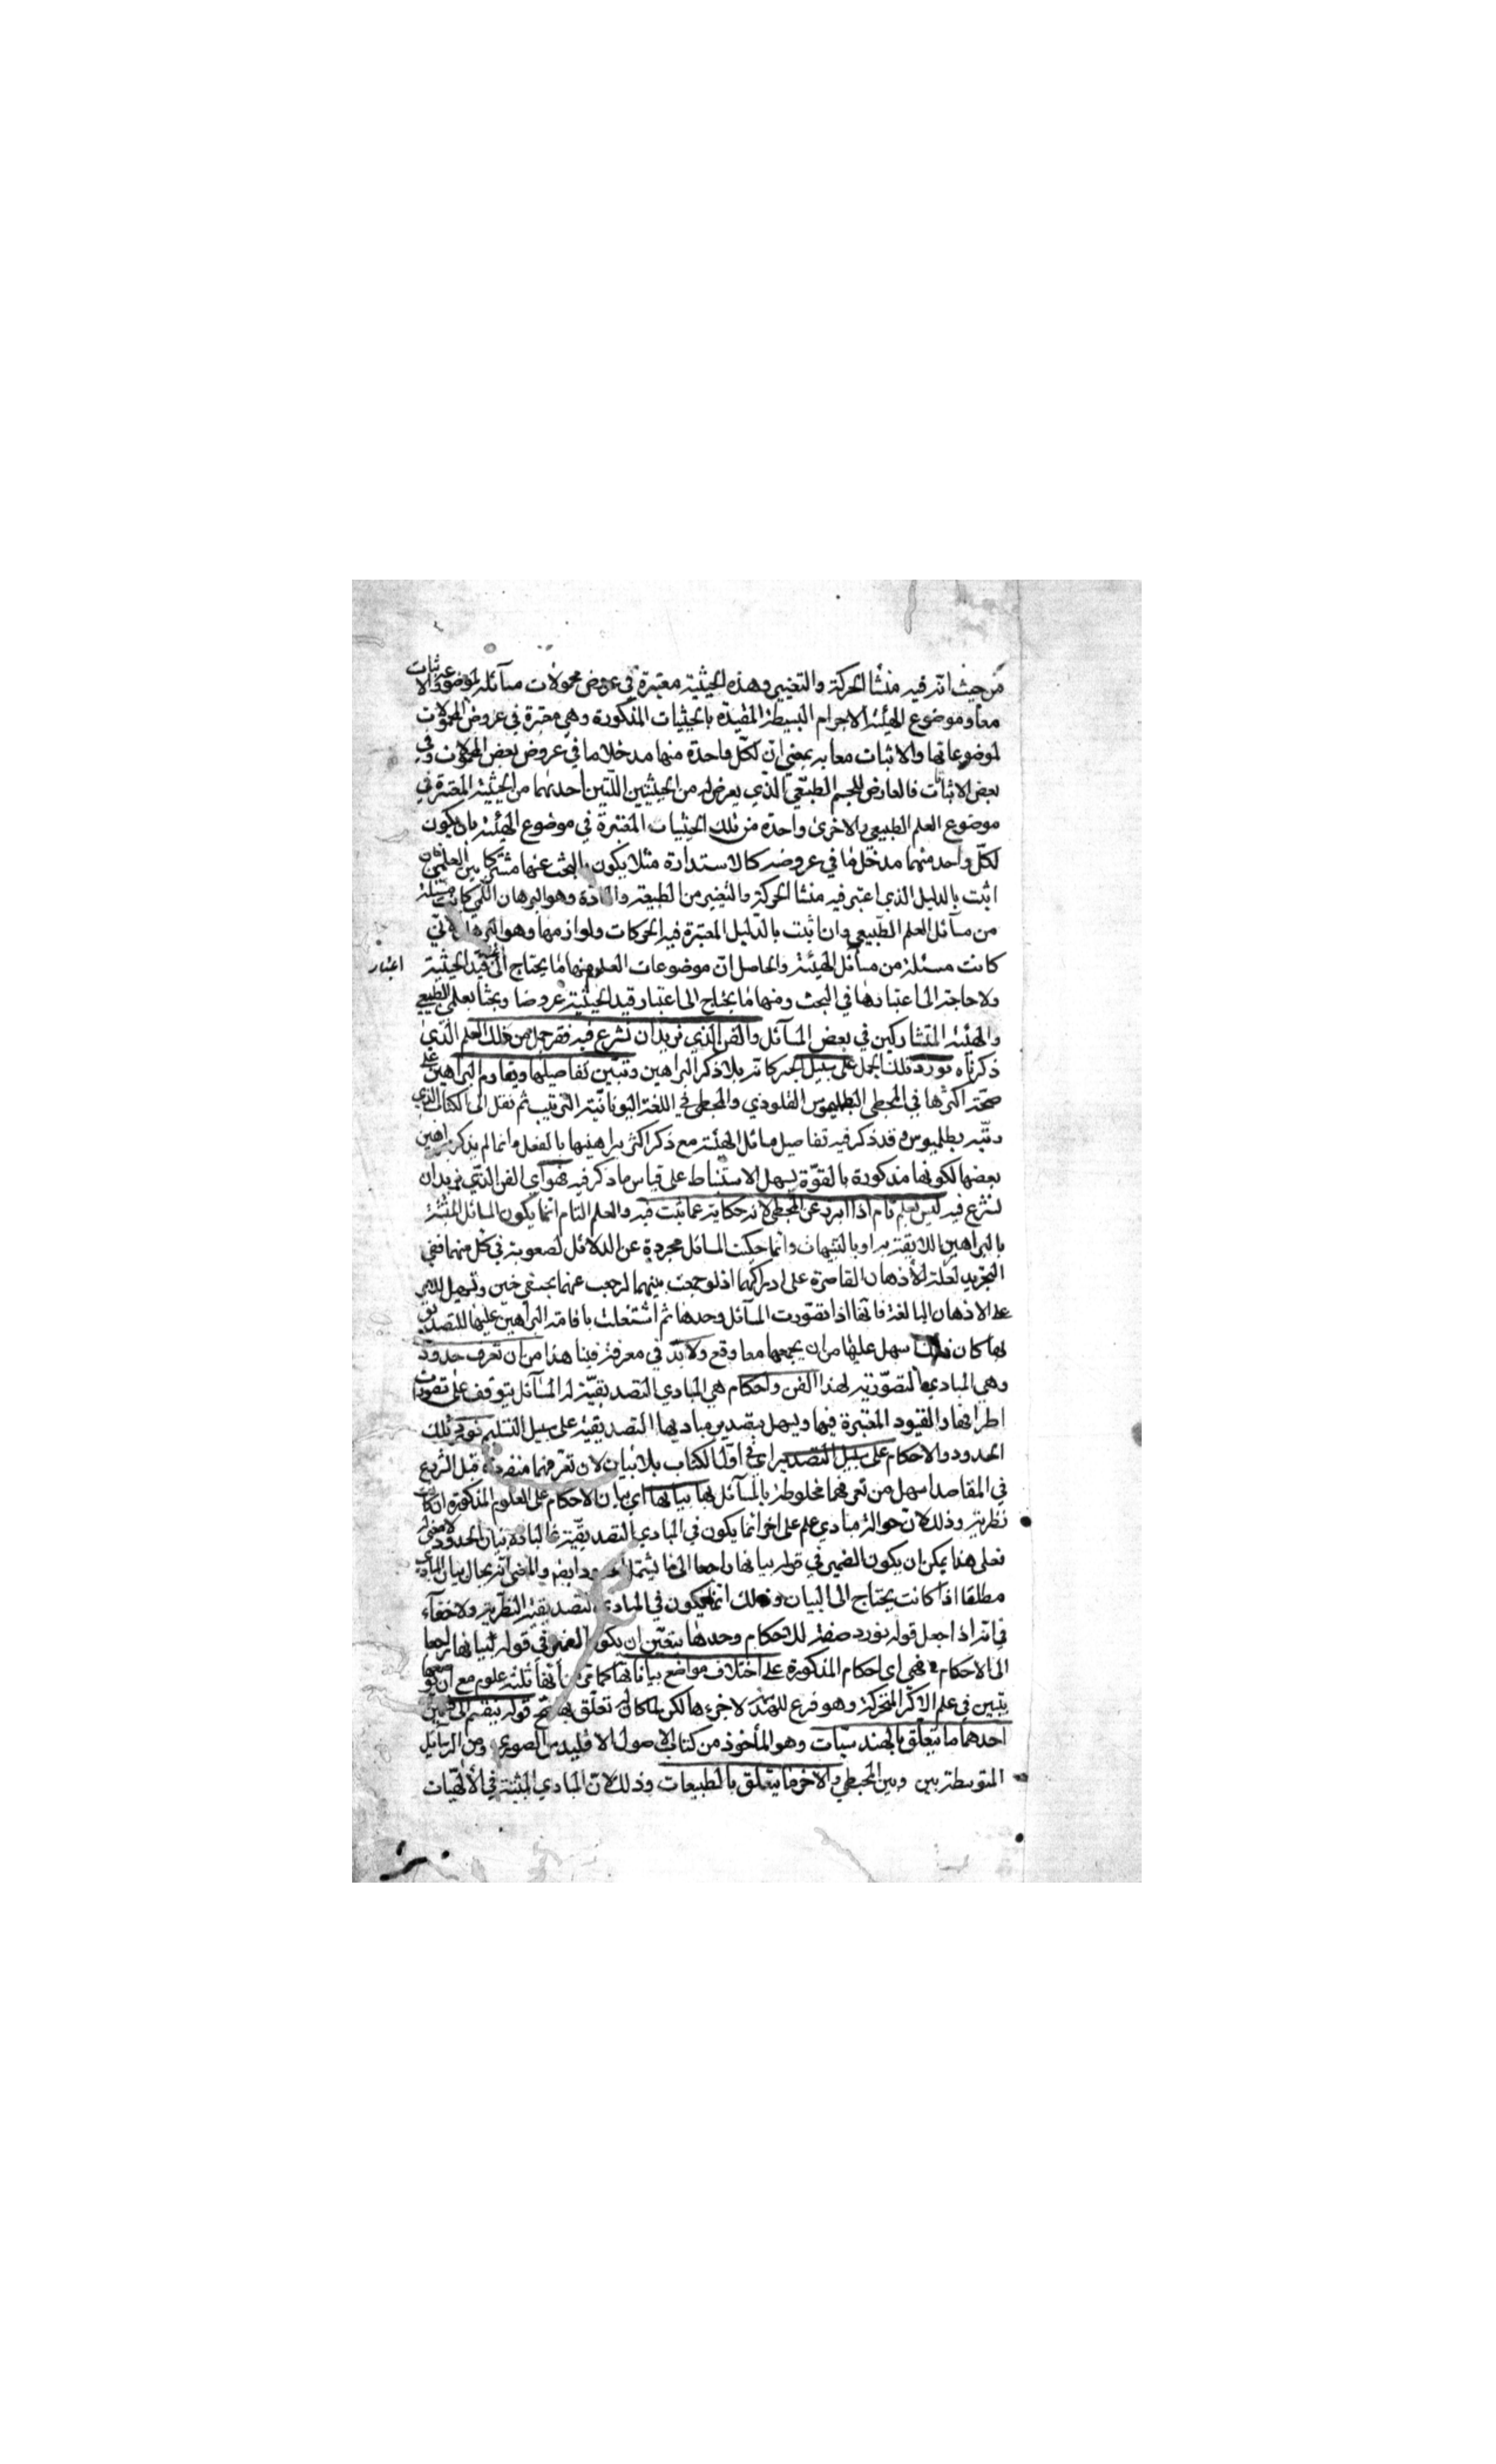 من حيث انه فيه منشأ الحركة والتغيير وهذه الحيثية معتبرة في عروض محمولات مسائله لموضوعه والاثبات
معا وموضوع الهيئة الاجرام البسيطة المقيدة بالحيثيات المذكورة وهي معتبرة في عروض المحمولات
لموضوعاتها والاثبات معا به بمعني ان لكل واحدة منها مدخلا ما في عروض بعض المحمولات وفي
بعض الاثبات فالعارض للجسم الطبيعي الذي يعرض له من الحيثيتين اللتين احدتهما من الحيثية المعتبرة في
موضوع العلم الطبيعي والاخرى واحدة من تلك الحيثيات المعتبرة في موضوع الهيئة بان يكون
لكل واحد منهما مدخل ما في عروضه كالاستدارة مثلا يكون البحث عنها مشتركا بين العلمين فان
اثبت بالدليل الذي اعتبر فيه منشأ الحركة والتغيير من الطبيعة والمادة وهو البرهان اللمي كانت مسئلة
من مسائل العلم الطبيعي وان اثبت بالدليل المعتبرة فيه الحركات ولوازمها وهو البرهان الاني
كانت مسئلة من مسائل الهيئة والحاصل ان موضوعات العلوم منها ما يحتاج الى قيد الحيثية
اعتبار
ولا حاجة الى اعتبارها في البحث ومنها ما يحتاج الى اعتبار قيد الحيثية عروضا وبحثا كعلمي الطبيعي
والهيئة المتشاركين في بعض المسائل والفن الذي نريد ان نشرع فيه فقد جمل من ذلك العلم الذي
ذكرناه نورد تلك الجمل على سبيل الحكاية بلا ذكر البراهين وتبين تفاصيلها ويقاوم البراهين على
صحة اكثرها في المجطي لبطليموس القلوذي والمجطي في اللغة اليونانية الترتيب ثم نقل الى الكتاب الذي
رتبه بطلميوس وقد ذكر فيه تفاصيل مسائل الهيئة مع ذكر اكثر براهينها بالفعل وانما لم يذكر براهين
بعضها لكونها مذكورة بالقوة يسهل الاستنباط على قياس ما ذكر فيه هو اي الفن الذي نريد ان
نشرع فيه ليس بعلم تام اذا افرد عن المجطي لانه حكاية عما ثبت فيه والعلم التام انما يكون المسائل المثبتة
بالبراهين اللايقة به او بالتنبيهات وانما حكيت المسائل مجردة عن الدلائل لصعوبة في كل منهما ففي
التجريد لعلة الاذهان القاصرة على ادراكهما اذ لو جمعت بينهما لرجعت عنهما بخفي حنين وتسهيل للامر
على الاذهان البالغة فانها اذا تصورت المسائل وحدها ثم اشتغلت باقامة البراهين عليها للتصديق
بها كان ذلك سهل عليها من ان يجمعها معا وقع ولا بد في معرفة فننا هذا من ان تعرف حدود
وهي المبادي التصورية لهذا الفن واحكام هي المبادي التصديقية له المسائل يتوقف على تصورات
اطرافها والقيود المعتبرة فيها ويسهل بتصدير مباديها التصديقية على سبيل التسليم نورد تلك
الحدود والاحكام على سبيل التصدير اي في اول الكتاب بلا بيان لان تعرفهما منفردة قبل الشروع
في المقاصد اسهل من تعرفهما مخلوطة بالمسائل بها بيانها اي بيان الاحكام على العلوم المذكورة ان كانت
نظرية وذلك لان حوالة مبادي علم على اخر انما يكون في المبادي التصديقية
فعلى هذا يمكن ان يكون الضمير في قوله بيانها راجعا الى ما يشتمل الحدود ايضا والمعنى انه يحال بيان المبادي
مطلقا اذا كانت يحتاج الى البيان وذلك انما يكون في المبادي التصديقية النظرية ولا خفاء
في انه اذا جعل قوله نورد صفة للاحكام وحدها يتعين ان يكون الضمير في قوله بيانها راجعا
الى الاحكام فهي اي احكام المذكورة على اختلاف مواضع بياناتها كما انفا ثلثة علوم مع ان
يتبين في علم الاكر المتحركة وهو فرع للهندسة لا جزءها لكن لما كان له تعلق بها صح قوله ينقسم الى قسمين
احدهما ما يتعلق بالهندسيات وهو المأخوذ من كتاب الاصول لاقليدس الصوري ومن الرسائل
المتوسطة بين وبين المجسطي والاخر ما يتعلق بالطبيعيات وذلك لان المبادي المثبتة في الالهيات